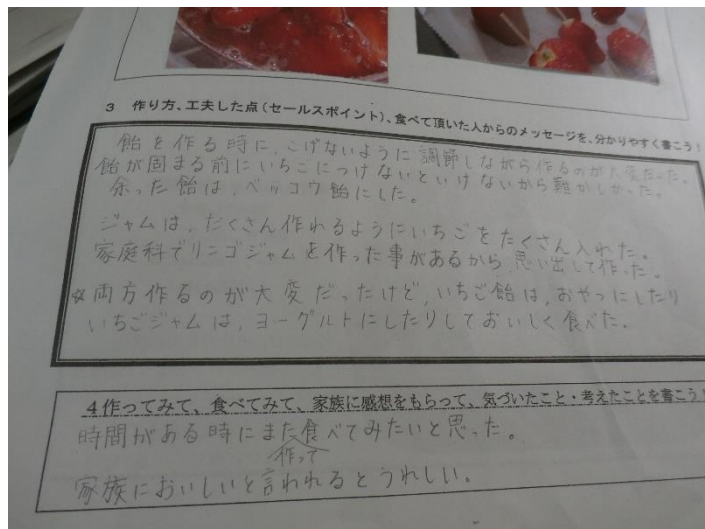 3 作り方、工夫した点(セールスポイント)、食べて頂いた人からのメッセージを、分かりやすく書こう!
飴を作る時に、こげないように調節しながら作るのが大変だった。
飴が固まる前にいちごにつけないといけないから難かしかった。
余った飴は、ベッコウ飴にした。
ジャムは、たくさん作れるようにいちごをたくさん入れた。
家庭科でリンゴジャムを作った事があるから、思い出して作った。
☆両方作るのが大変だったけど、いちご飴は、おやつにしたり
いちごジャムは、ヨーグルトにしたりしておいしく食べた。
4作ってみて、食べてみて、家族に感想をもらって、気づいたこと・考えたことを書こう!
時間がある時にまた食べてみたいと思った。
作って
家族においしいと言われるとうれしい。